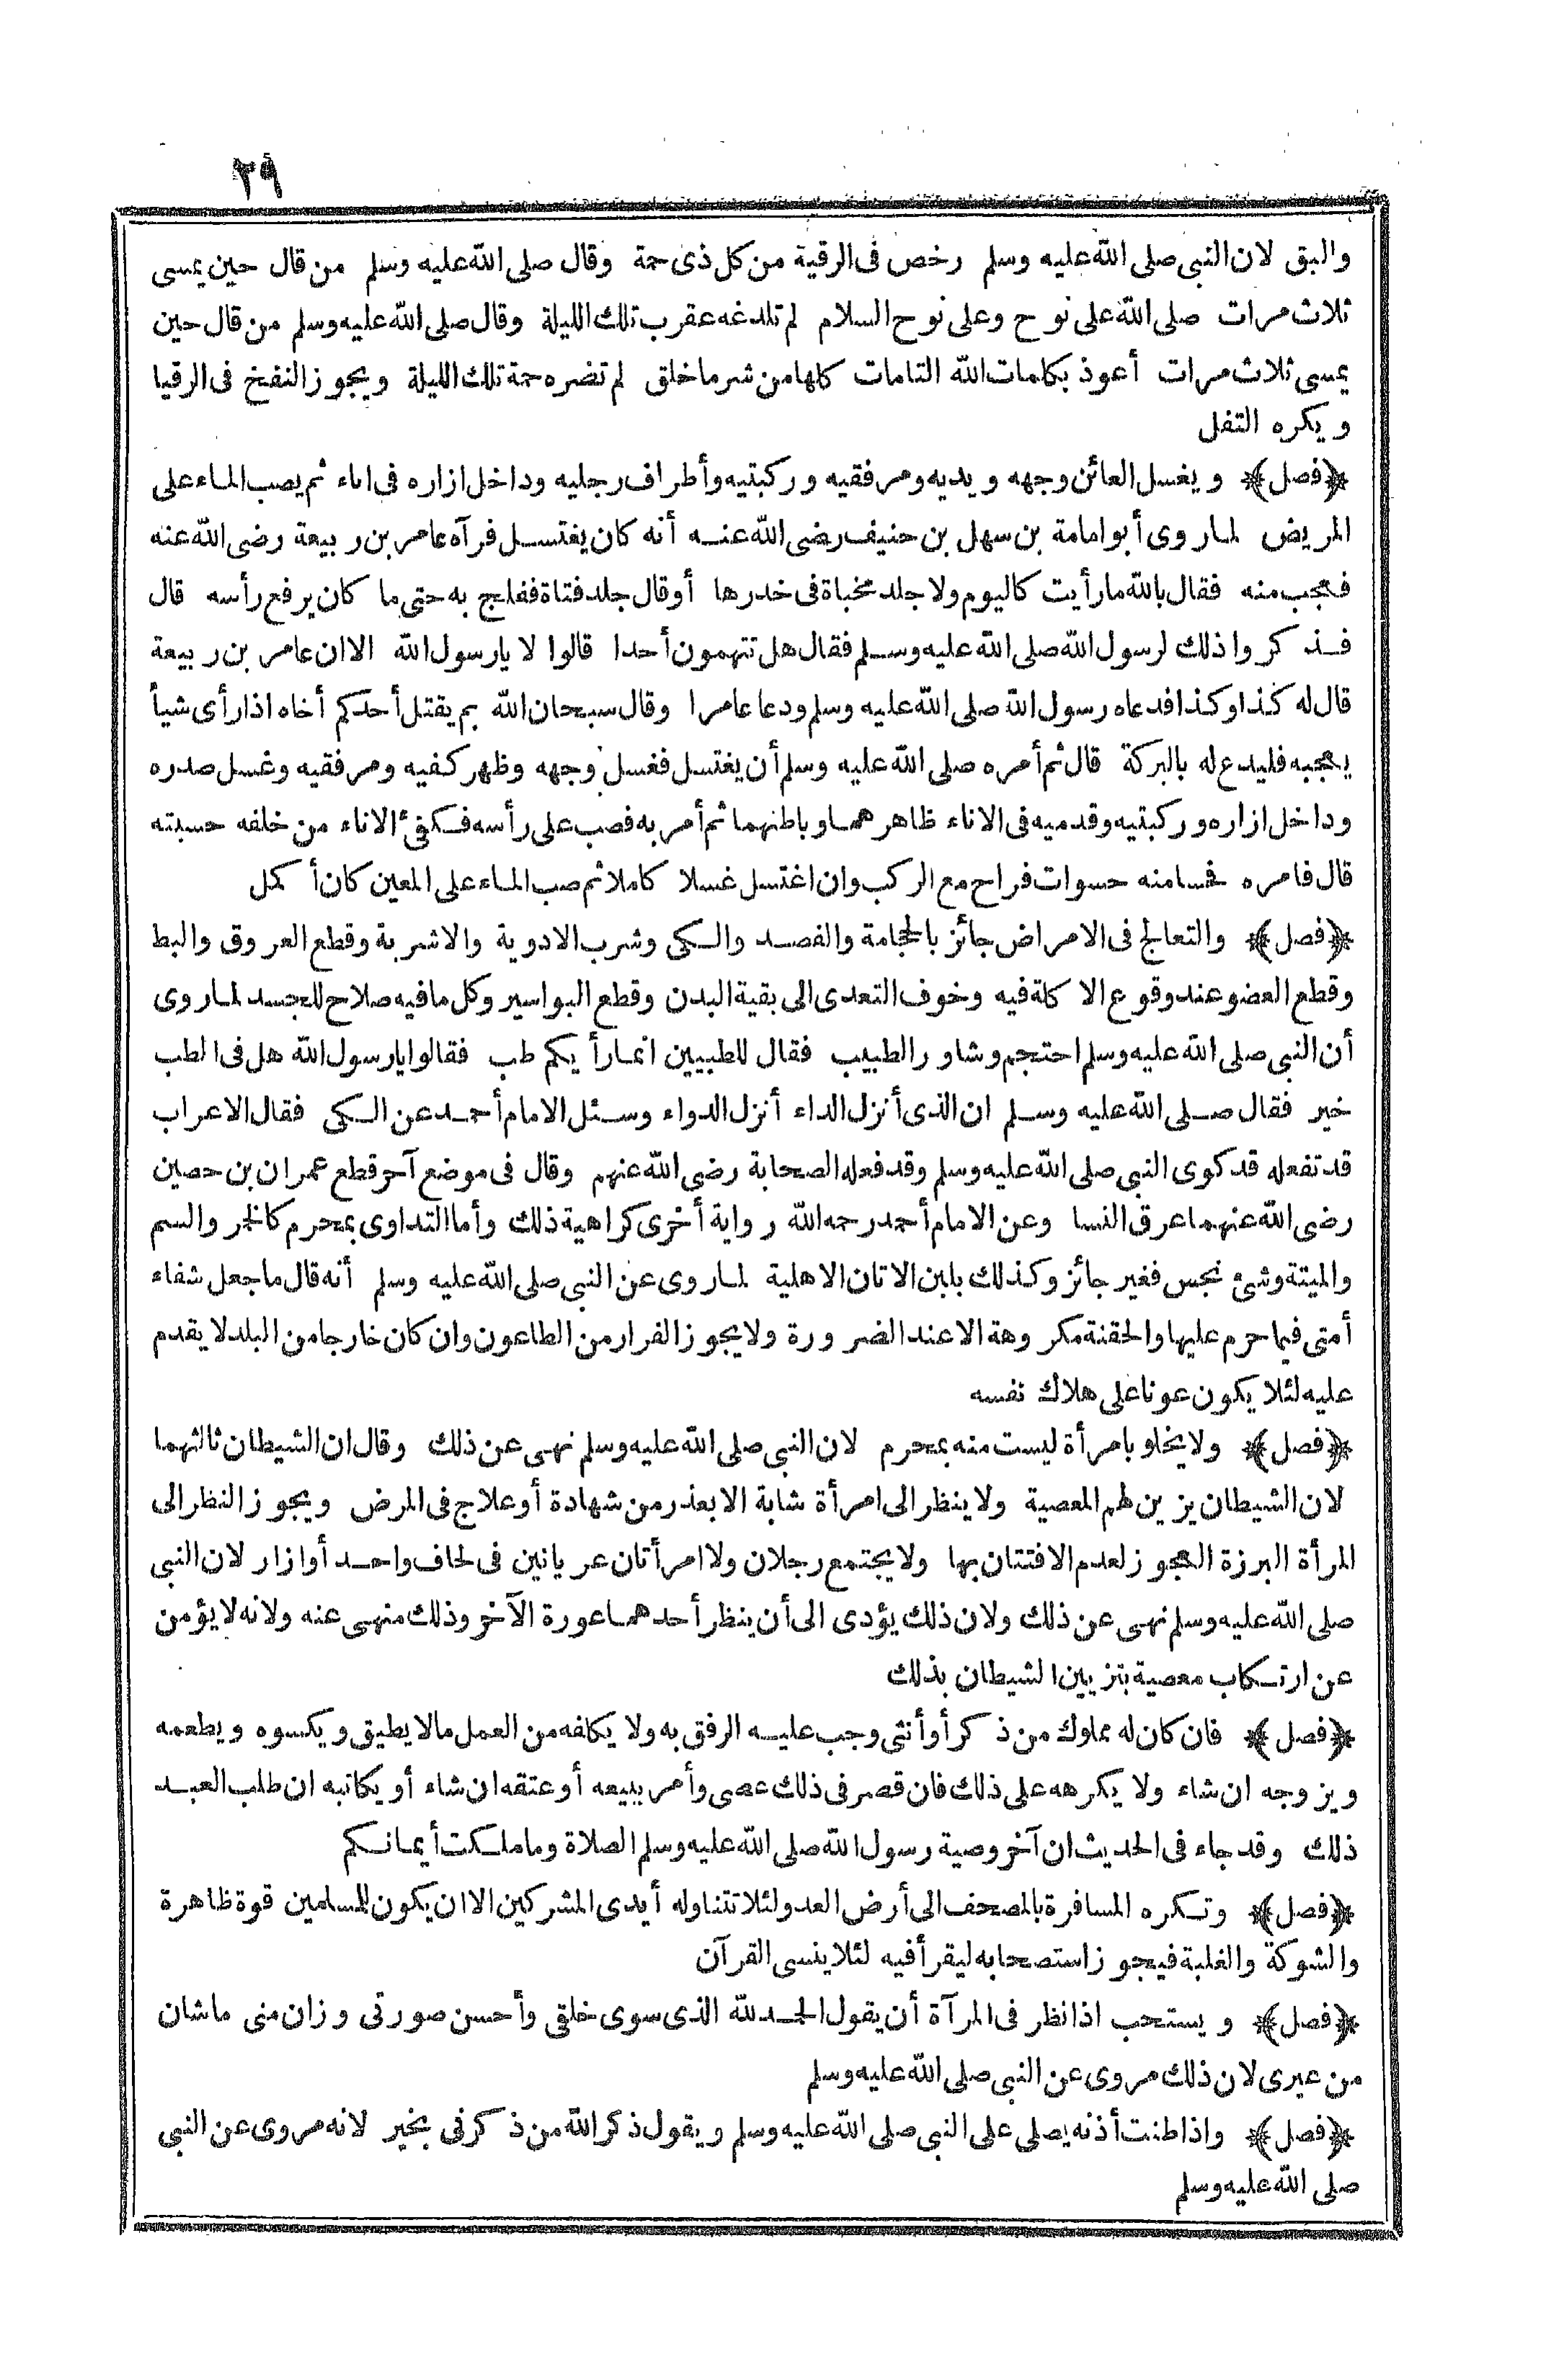 ٣٩
والبق لان النبى صلى الله عليه وسلم رخص فى الرقية من كل ذى حمة وقال صلى الله عليه وسلم من قال حين يمسى
ثلاث مرات صلى الله على نوح وعلى نوح السلام لم تلدغه عقرب تلك الليلة وقال صلى الله عليه وسلم من قال حين
يمسى ثلاث مرات أعوذ بكلمات الله التامات كلها من شر ما خلق لم تضره حمة تلك الليلة ويجوز النفخ فى الرقيا
ويكره التفل
﴿فصل﴾ ويغسل العائن وجهه ويديه ومرفقيه وركبتيه وأطراف رجليه وداخل ازاره فى اناء ثم يصب الماء على
المريض لما روى أبو امامة بن سهل بن حنيف رضى الله عنه أنه كان يغتسل فرآه عامر بن ربيعة رضى الله عنه
فعجب منه فقال بالله ما رأيت كاليوم ولا جلد مخبأة فى خدرها أو قال جلد فتاة ففلج به حتى ما كان يرفع رأسه قال
فذكروا ذلك لرسول الله صلى الله عليه وسلم فقال هل تتهمون أحدا قالوا لا يا رسول الله الا ان عامر بن ربيعة
قال له كذا وكذا فدعاه رسول الله صلى الله عليه وسلم ودعا عامرا وقال سبحان الله بم يقتل أحدكم أخاه اذا رأى شيأ
يعجبه فليدع له بالبركة قال ثم أمره صلى الله عليه وسلم أن يغتسل فغسل وجهه وظهر كفيه ومرفقيه وغسل صدره
وداخل ازاره وركبتيه وقدميه فى الاناء ظاهرهما وباطنهما ثم أمر به فصب على رأسه فكفئ الاناء من خلفه حسبته
قال فامره فحسا منه حسوات فراح مع الركب وان اغتسل غسلا كاملا ثم صب الماء على المعين كان أكمل
﴿فصل﴾ والتعالج فى الامراض جائز بالحجامة والفصد والكى وشرب الادوية والاشربة وقطع العروق والبط
وقطع العضو عند وقوع الاكلة فيه وخوف التعدى الى بقية البدن وقطع البواسير وكل ما فيه صلاح للجسد لما روى
أن النبى صلى الله عليه وسلم احتجم وشاور الطبيب فقال للطبيبين انما رأيكم طب فقالوا يا رسول الله هل فى الطب
خير فقال صلى الله عليه وسلم ان الذى أنزل الداء أنزل الدواء وسئل الامام أحمد عن الكى فقال الاعراب
قد تفعله قد كوى النبى صلى الله عليه وسلم وقد فعله الصحابة رضى الله عنهم وقال فى موضع آخر قطع عمران بن حصين
رضى الله عنهما عرق النسا وعن الامام أحمد رحمه الله رواية أخرى كراهية ذلك وأما التداوى بمحرم كالخمر والسم
والميتة وشئ نجس فغير جائز وكذلك بلبن الاتان الاهلية لما روى عن النبى صلى الله عليه وسلم أنه قال ما جعل شفاء
أمتى فيما حرم عليها والحقنة مكروهة الا عند الضرورة ولا يجوز الفرار من الطاعون وان كان خارجا من البلد لا يقدم
عليه لئلا يكون عونا على هلاك نفسه
﴿فصل﴾ ولا يخلو بامرأة ليست منه بمحرم لان النبى صلى الله عليه وسلم نهى عن ذلك وقال ان الشيطان ثالثهما
لان الشيطان يزين لهم المعصية ولا ينظر الى امرأة شابة الا بعذر من شهادة أو علاج فى المرض ويجوز النظر الى
المرأة البرزة العجوز لعدم الافتتان بها ولا يجتمع رجلان ولا امرأتان عريانين فى لحاف واحد أو ازار لان النبى
صلى الله عليه وسلم نهى عن ذلك ولان ذلك يؤدى الى أن ينظر أحدهما عورة الآخر وذلك منهى عنه ولانه لا يؤمن
عن ارتكاب معصية بتزيين الشيطان بذلك
﴿فصل﴾ فان كان له مملوك من ذكر أو أنثى وجب عليه الرفق به ولا يكلفه من العمل ما لا يطيق ويكسوه ويطعمه
ويزوجه ان شاء ولا يكرهه على ذلك فان قصر فى ذلك عصى وأمر ببيعه أو عتقه ان شاء أو يكاتبه ان طلب العبد
ذلك وقد جاء فى الحديث ان آخر وصية رسول الله صلى الله عليه وسلم الصلاة وما ملكت أيمانكم
﴿فصل﴾ وتكره المسافرة بالمصحف الى أرض العدو لئلا تتناوله أيدى المشركين الا ان يكون للمسلمين قوة ظاهرة
والشوكة والغلبة فيجوز استصحابه ليقرأ فيه لئلا ينسى القرآن
﴿فصل﴾ ويستحب اذا نظر فى المرآة أن يقول الحمد لله الذى سوى خلقى وأحسن صورتى وزان منى ما شان
من غيرى لان ذلك مروى عن النبى صلى الله عليه وسلم
﴿فصل﴾ واذا طنت أذنه يصلى على النبى صلى الله عليه وسلم ويقول ذكر الله من ذكرنى بخير لانه مروى عن النبى
صلى الله عليه وسلم